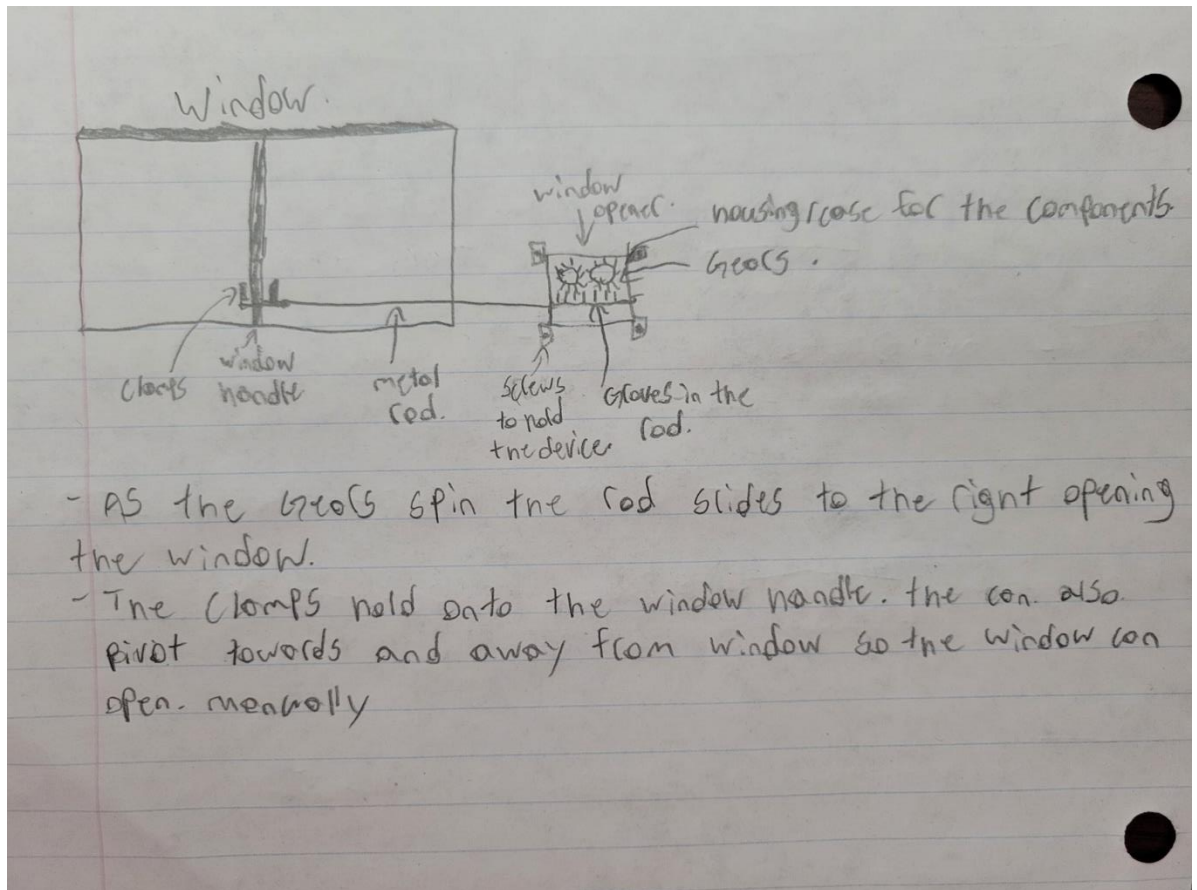 Window.
window
opener.
housing/case for the components.
Gears.
clamps
window
handle
metal
rod.
screws
to hold
the device.
Groves in the
rod.
- As the Gears spin the rod slides to the right opening
the window.
- The Clamps hold onto the window handle. the can. also.
pivot towards and away from window so the window can
open. menually